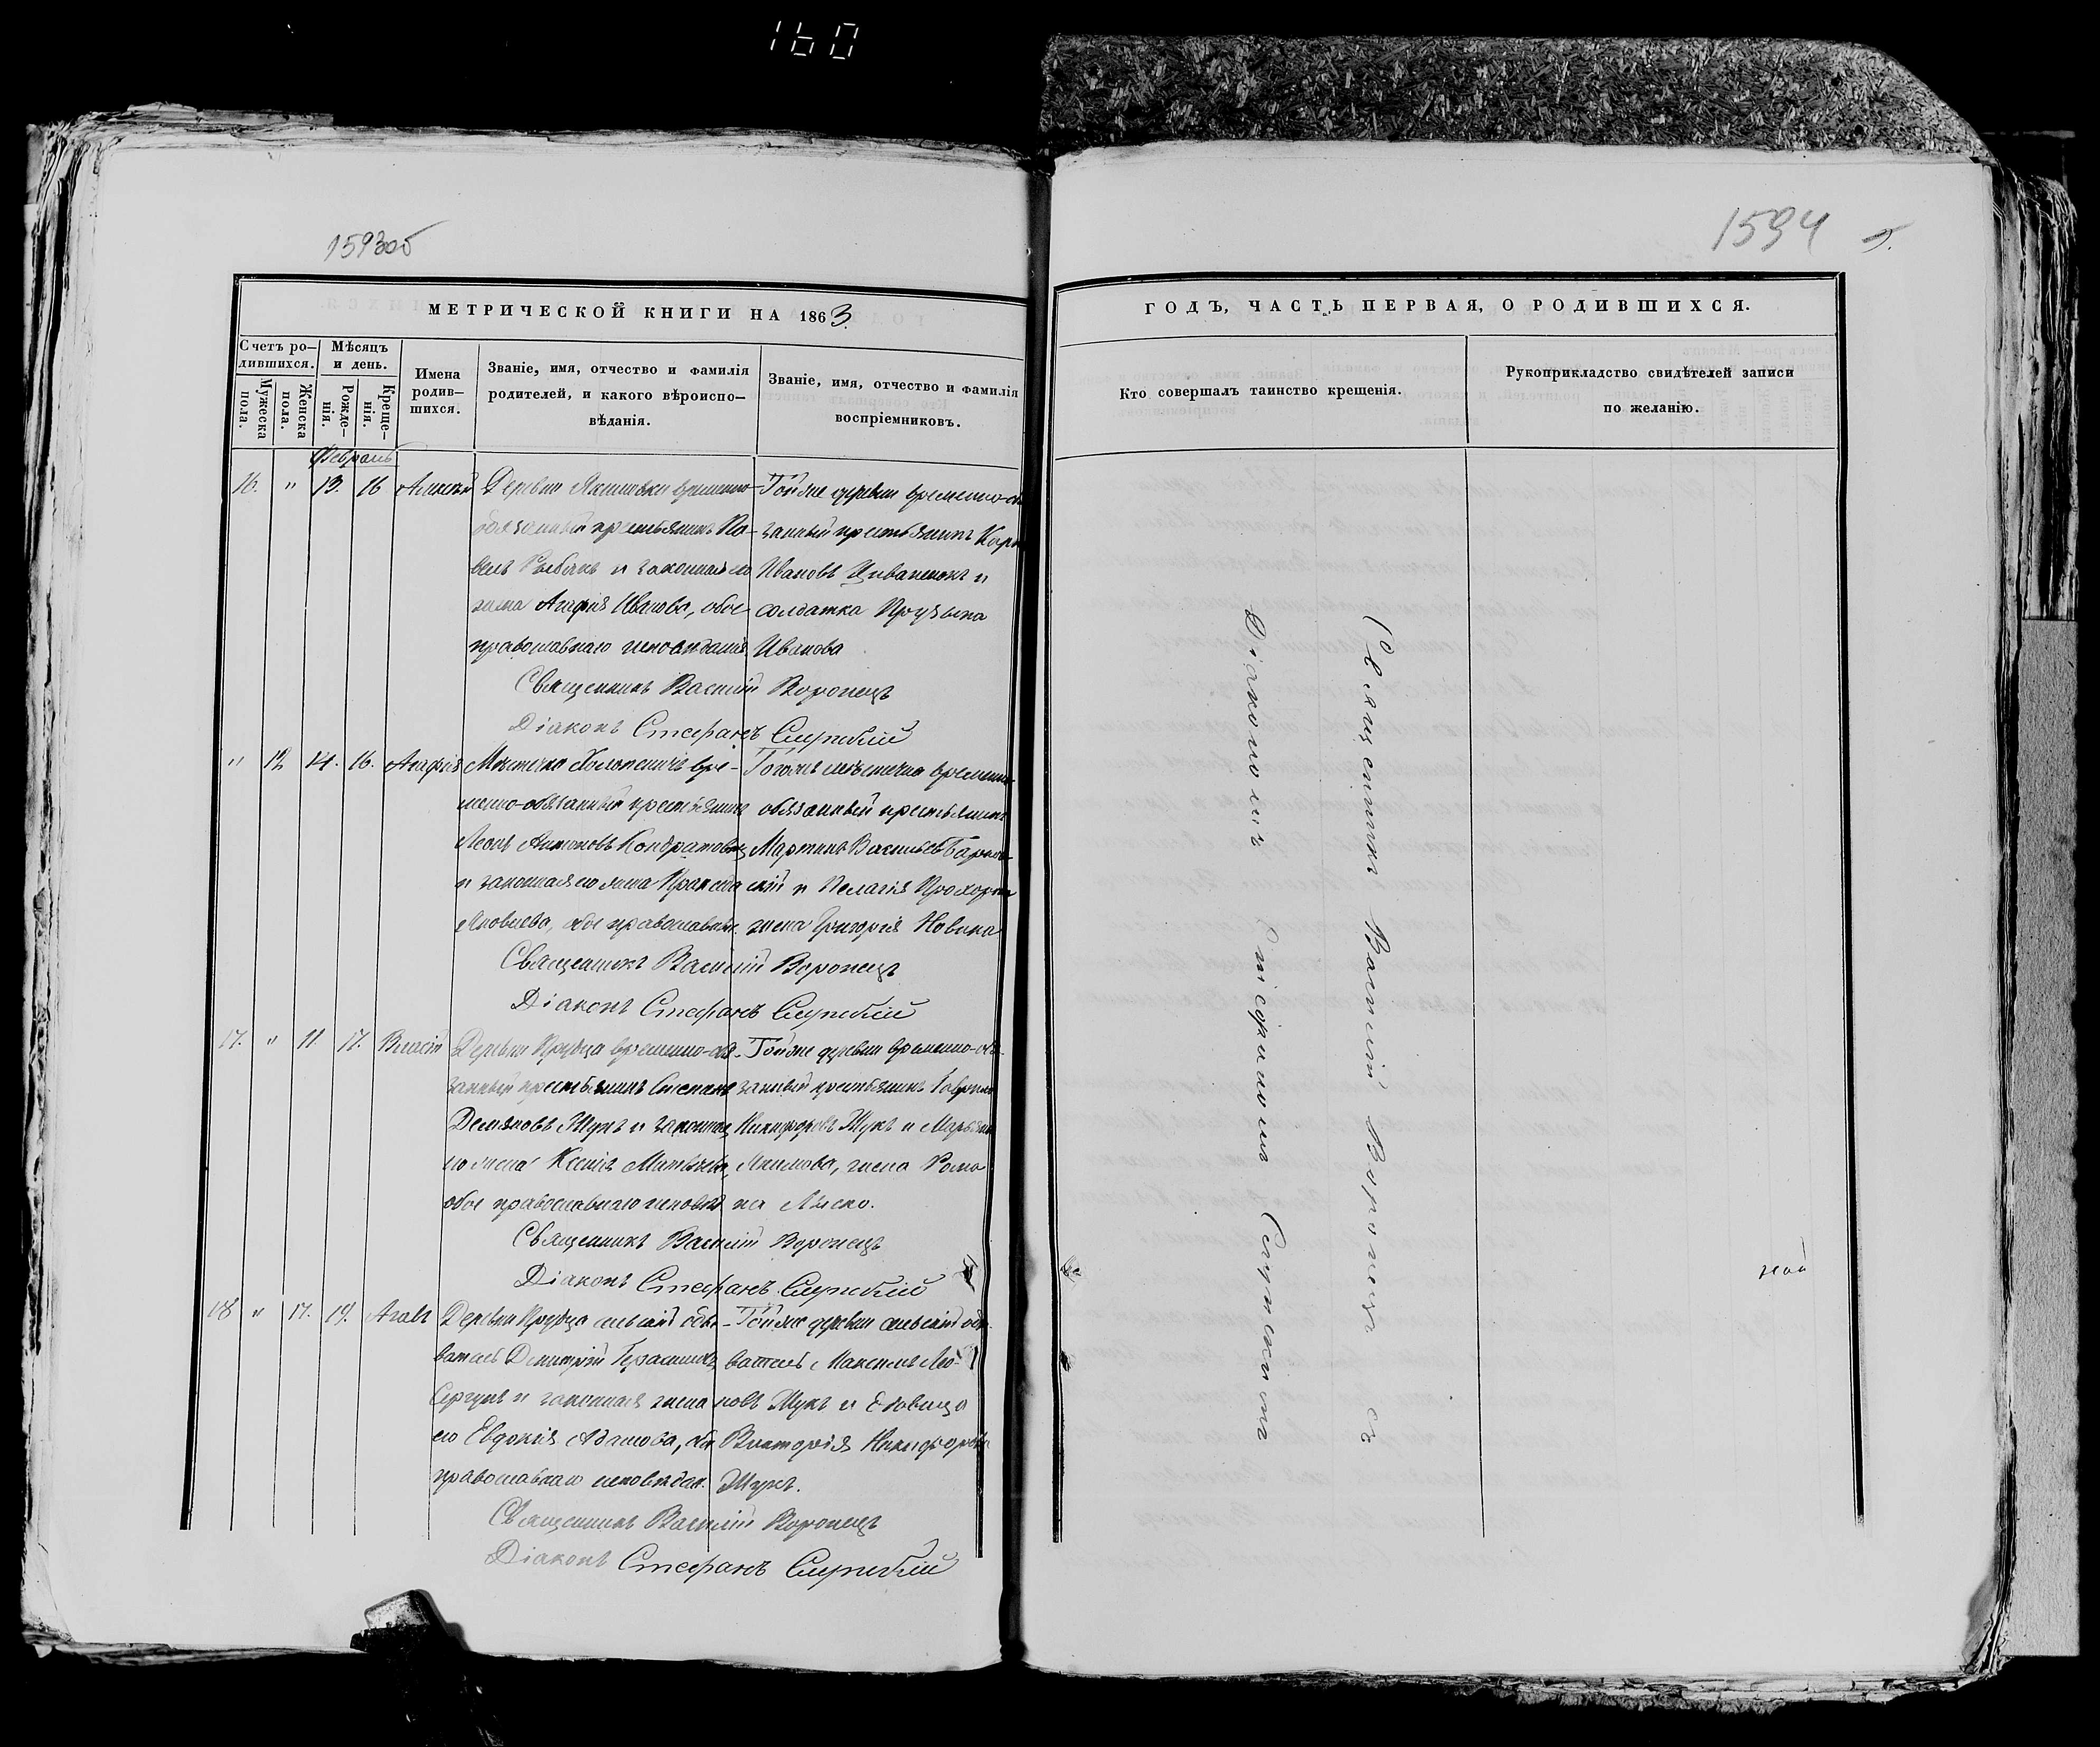 160
1593об
МЕТРИЧЕСКОЙ КНИГИ НА 1863
Счетъ ро-
дившихся.
Мѣсяцъ
и день.
Мужеска
пола.
Женска
пола.
Рожде-
нія.
Креще-
нія.
Имена
родив-
шихся.
Званіе, имя, отчество и фамилія
родителей, и какого вѣроиспо-
вѣданія.
Званіе, имя, отчество и фамилія
воспріемниковъ.
Февраль
16. " 13. 16 Алексѣй
Деревни временно-
обязанный крестьянинъ Па-
велъ Рыбакъ и законная его
жена Агафія Иванова, обое
православнаго исповеданія
Тойже деревни временно-обя
занный крестьянинъ
Ивановъ и
солдатка Прузына
Иванова
Священникъ Василій Воронецъ
Діаконъ Стефанъ Слупскій
" 12 14. 16. Агафія
Мѣстечка Холопеничъ вре-
менно-обязанный крестьянинъ
Леонъ Антоновъ Кондратовичъ
и законная его жена
Яковлева, обое православн.
Тогоже мѣстечка временно
обязанный крестьянинъ
Мартинъ Васильевъ
скій и Пелагія Прохорова
жена Григорія Новика
Священникъ Василій Воронецъ
Діаконъ Стефанъ Слупскій
17. " 11. 17. Власій
Деревни Прудца временно-обя-
занный крестьянинъ Степанъ
Демяновъ Жукъ и законная
его жена Ксенія
обое православнаго исповѣд
Тойже деревни временно-обя-
занный крестьянинъ Гаврило
Никифоровъ Жукъ и Марьяна
Якимова, жена Рома
на Лыско.
Священникъ Василій Воронецъ
Діаконъ Стефанъ Слупскій
18 " 17. 19. Агавъ
Деревни Прудца сельскій обы-
ватель Дмитрій Герасимовъ
Сергунъ и законная жена
его Евдокія Адамова, обое
православнаго исповѣдан.
Тойже деревни сельскій обы-
ватель Максимъ Лео-
новъ Жукъ и вдовица
Викторія Никифорова
Жукъ.
Священникъ Василій Воронецъ
Діаконъ Стефанъ Слупскій
1594
ГОДЪ, ЧАСТЬ ПЕРВАЯ, О РОДИВШИХСЯ.
Кто совершалъ таинство крещенія.
Рукоприкладство свидѣтелей записи
по желанію.
Священникъ Василій Воронецъ съ
Діакономъ Стефаномъ Слупскимъ